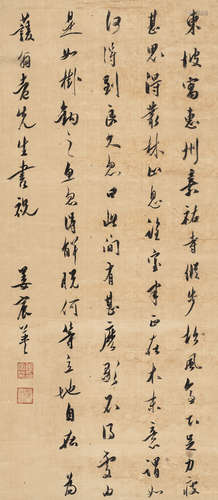 東坡寓惠州嘉祐寺縱步松風亭下足力疲
甚思得叢林止息望亭宇正在木末意謂如
何得到良久忽曰此間有甚麼歇不得處由
是如掛鉤之魚忽得解脫何等立地自在 為
伯老先生書祝 姜宸英